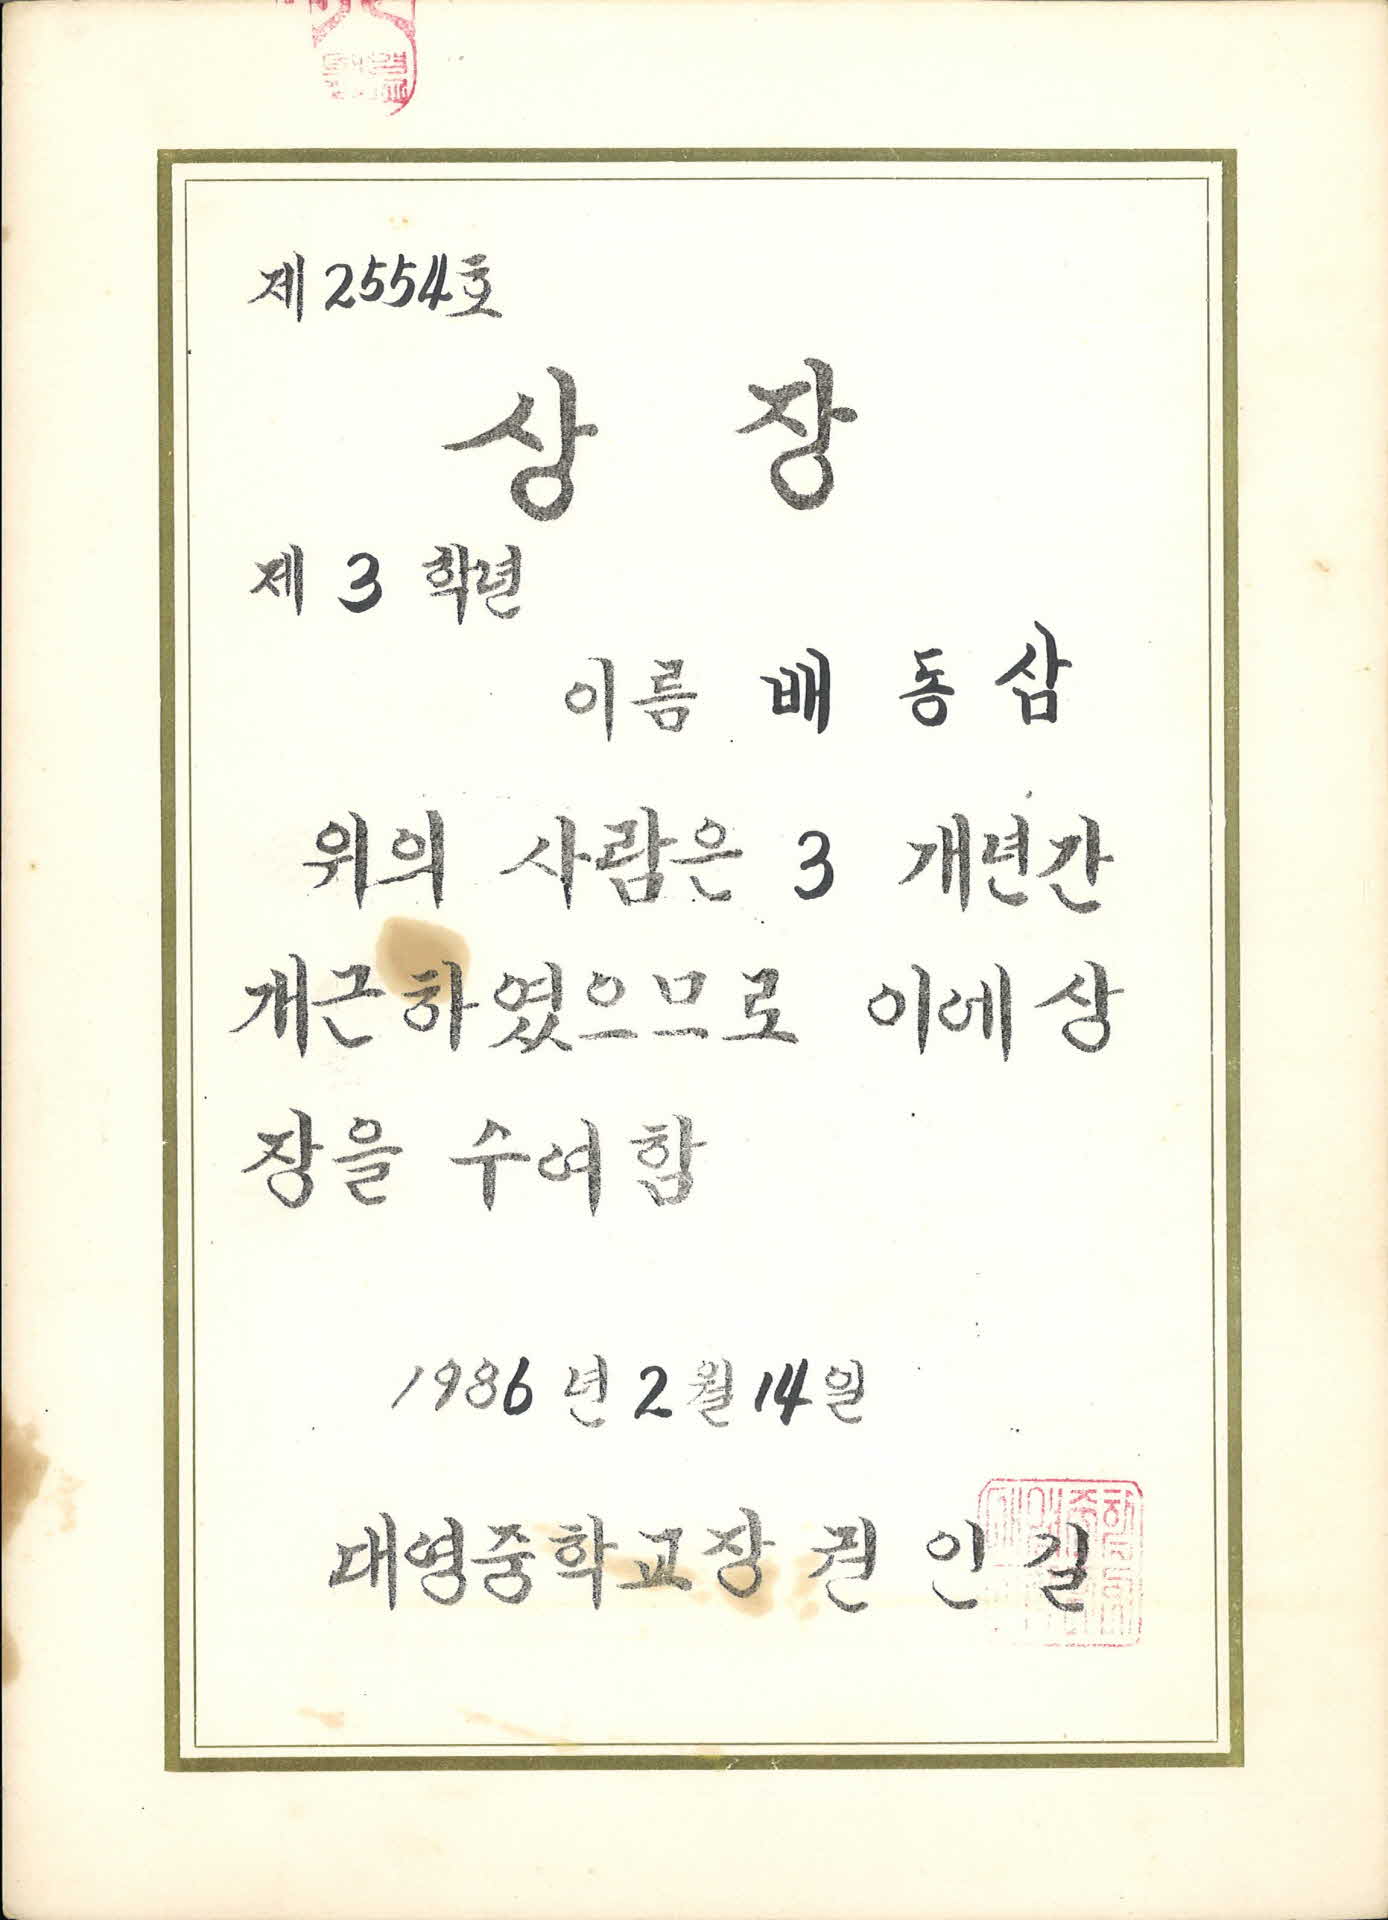 제2554호
상 장
제 3 학년
이름 배 동 삼
위의 사람은 3 개년간
개근하였으므로 이에 상
장을 수여함
1986년 2월 14일
대영중학교장 권 인 길